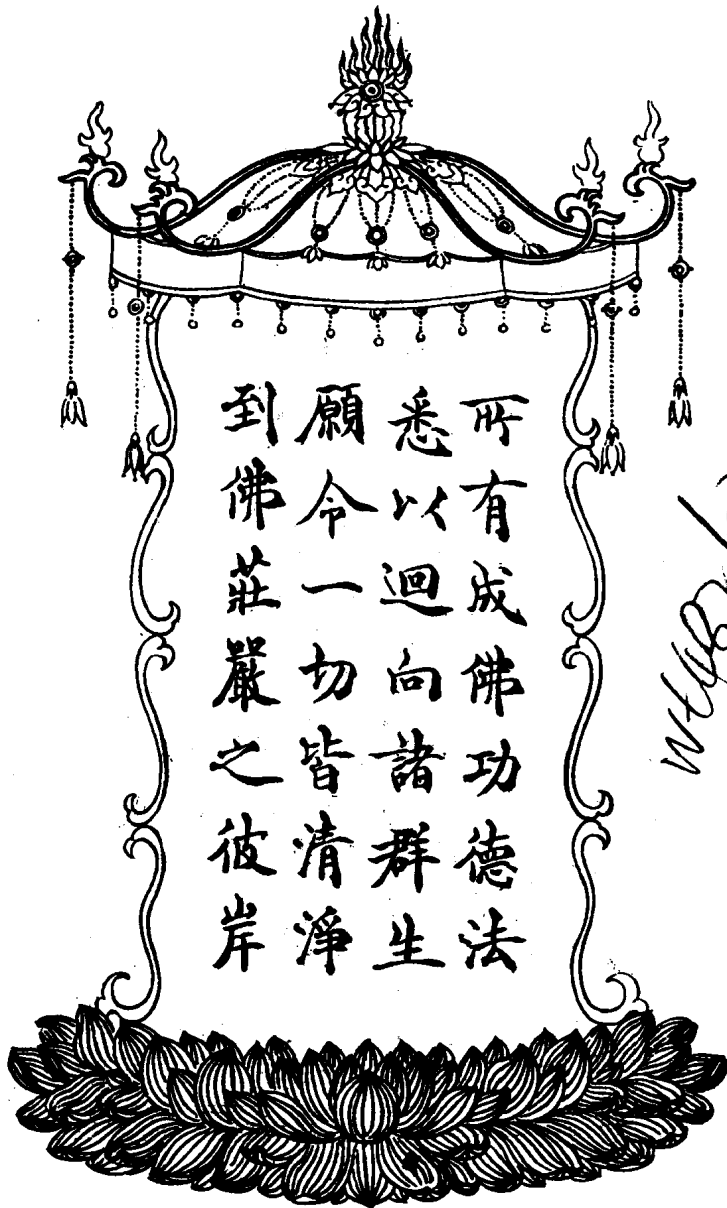 所有成佛功德法
悉以迴向諸群生
願令一切皆清淨
到佛莊嚴之彼岸